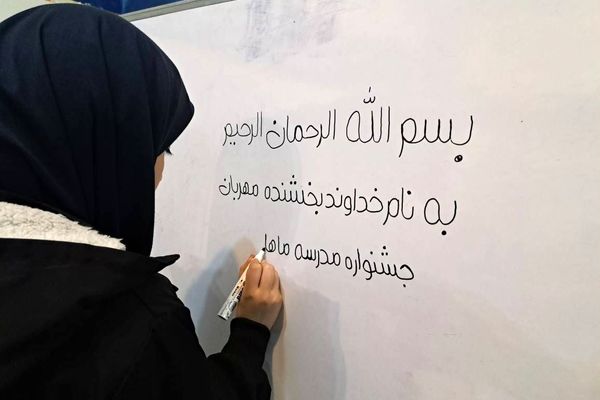 بسم الله الرحمان الرحیم
به نام خداوند بخشنده مهربان
جشنواره مدرسه ماها